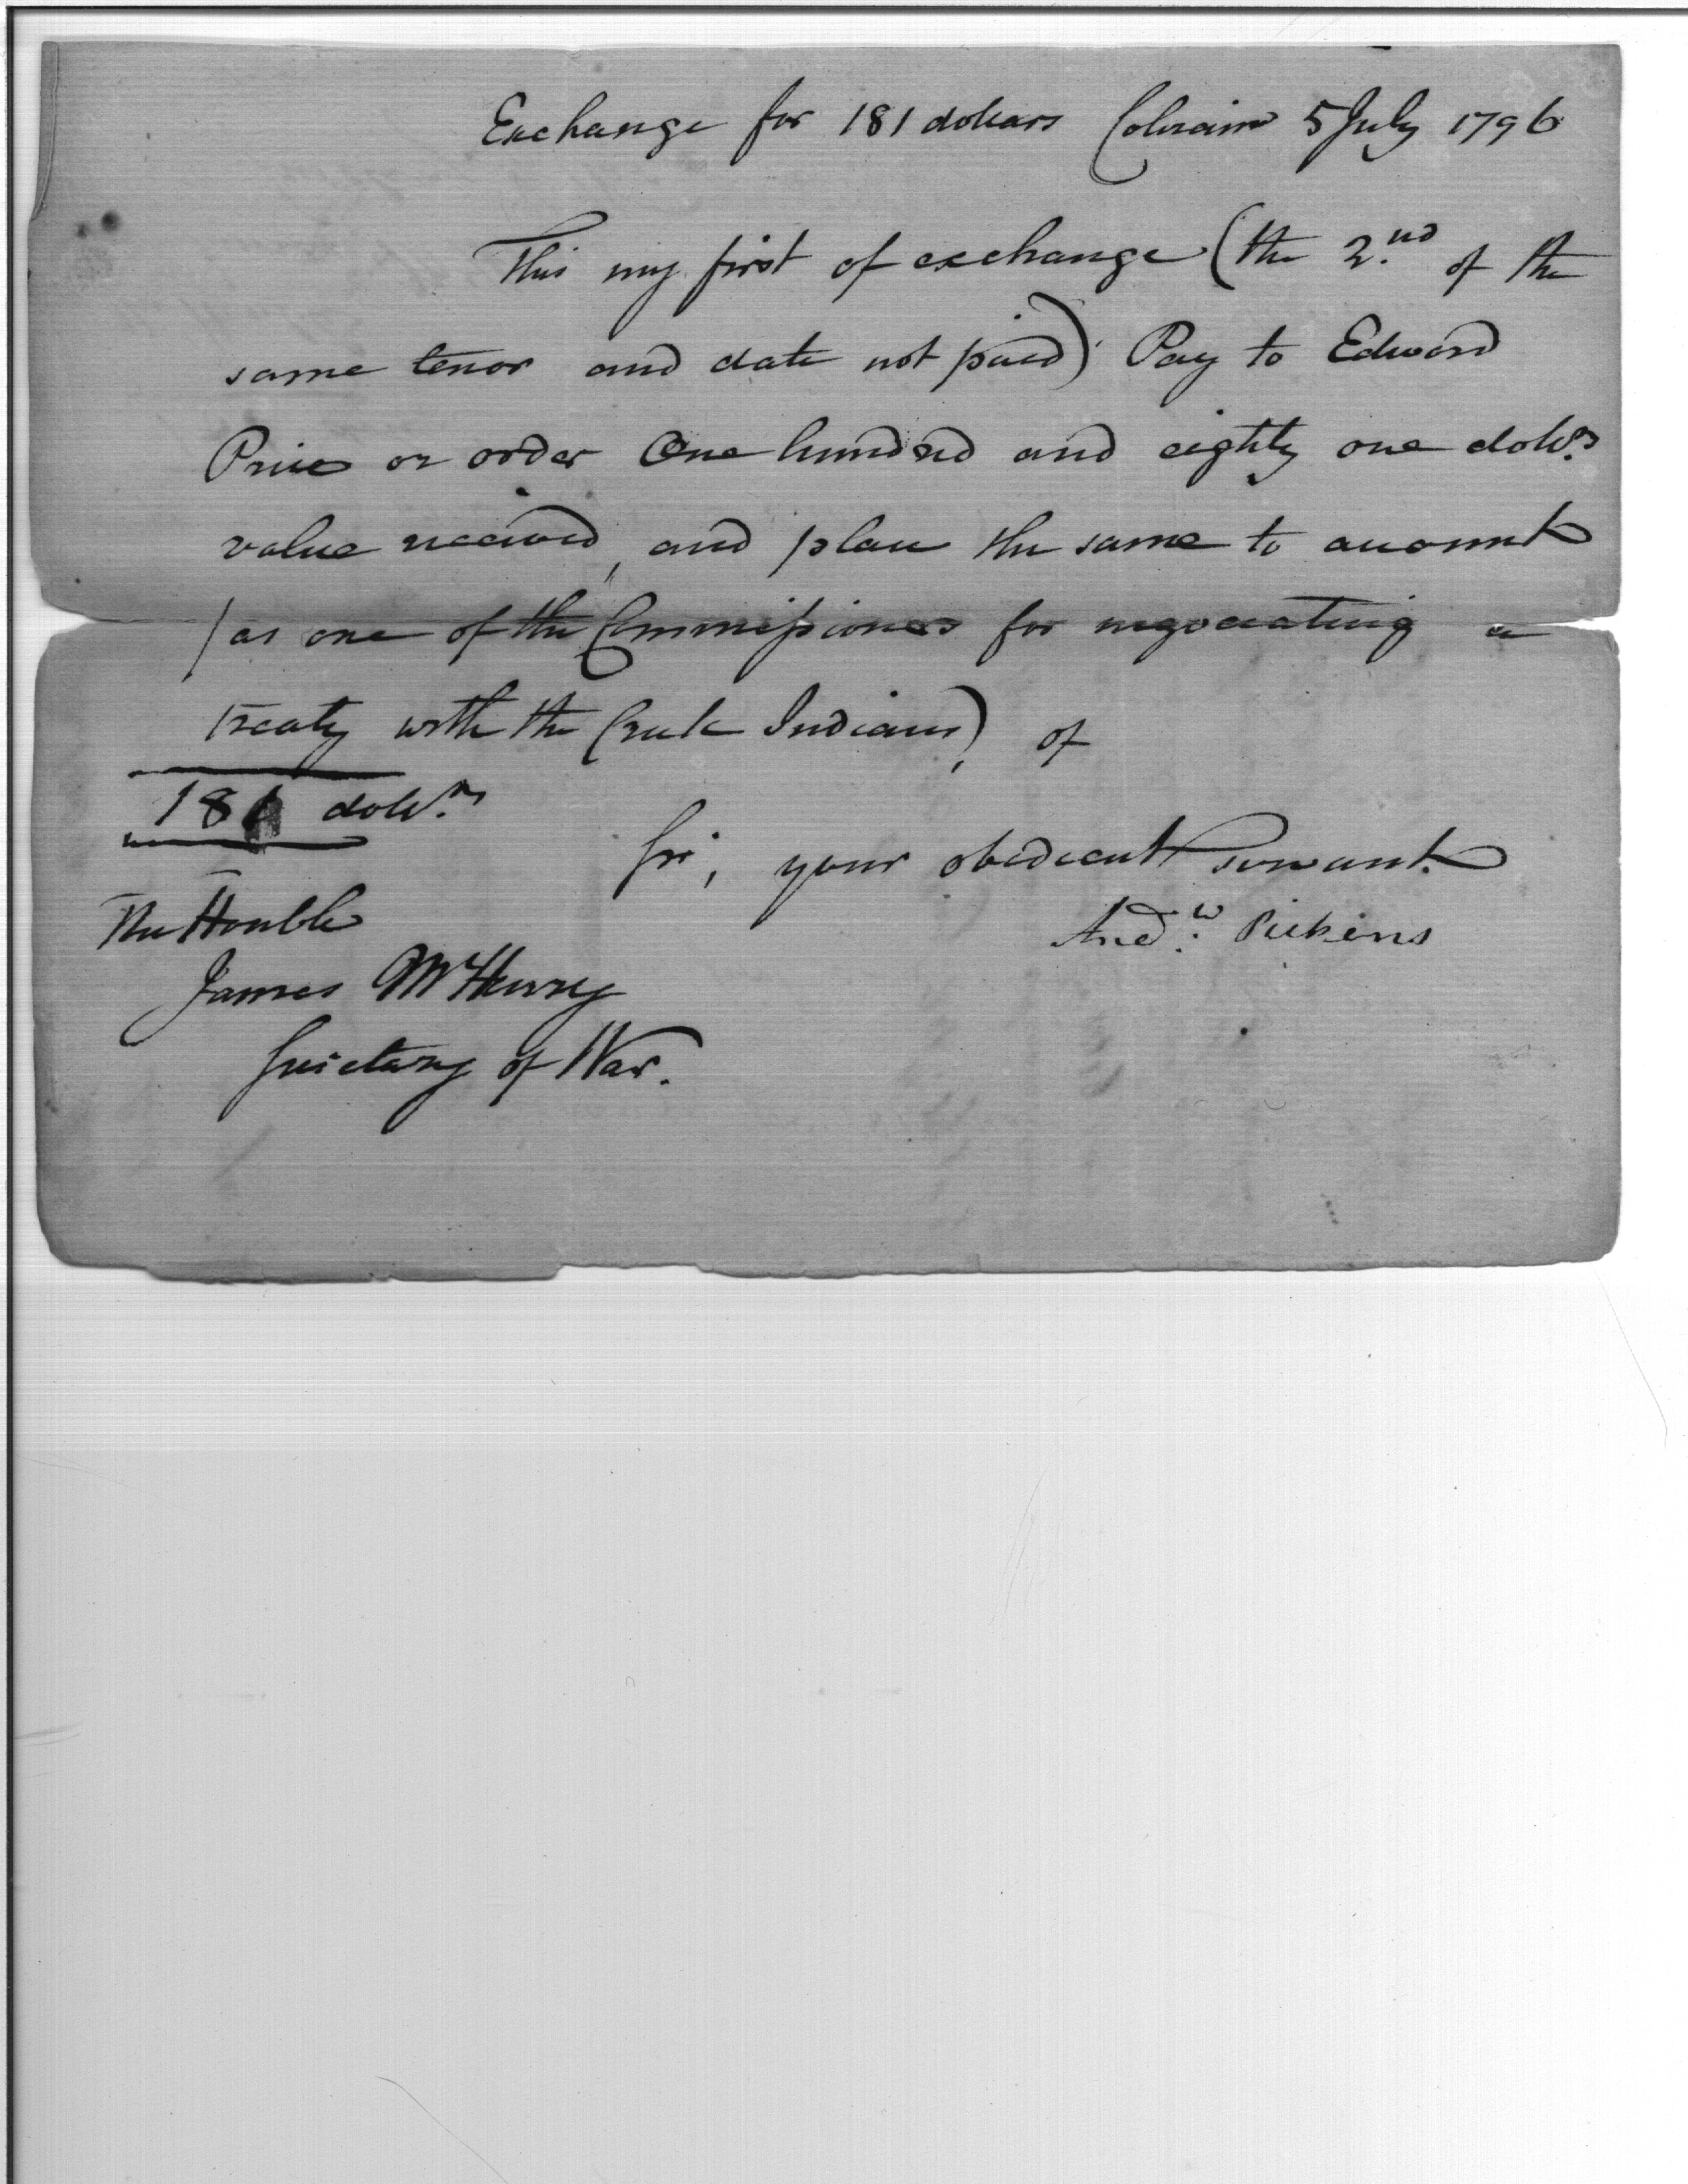 Exchange for 181 dollars Colerain 5 July 1796
This my first of exchange (the 2.nd of the
same tenor and date not paid) Pay to Edward
Price or order One hundred and eighty one doll.rs
value received, and place the same to account
(as one of the Commissioners for negociating a
treaty with the Creek Indians), of
181 doll.rs
Sir, your obedient servant.
And.w Pickens
The Honble
James McHenry
Secretary of War.